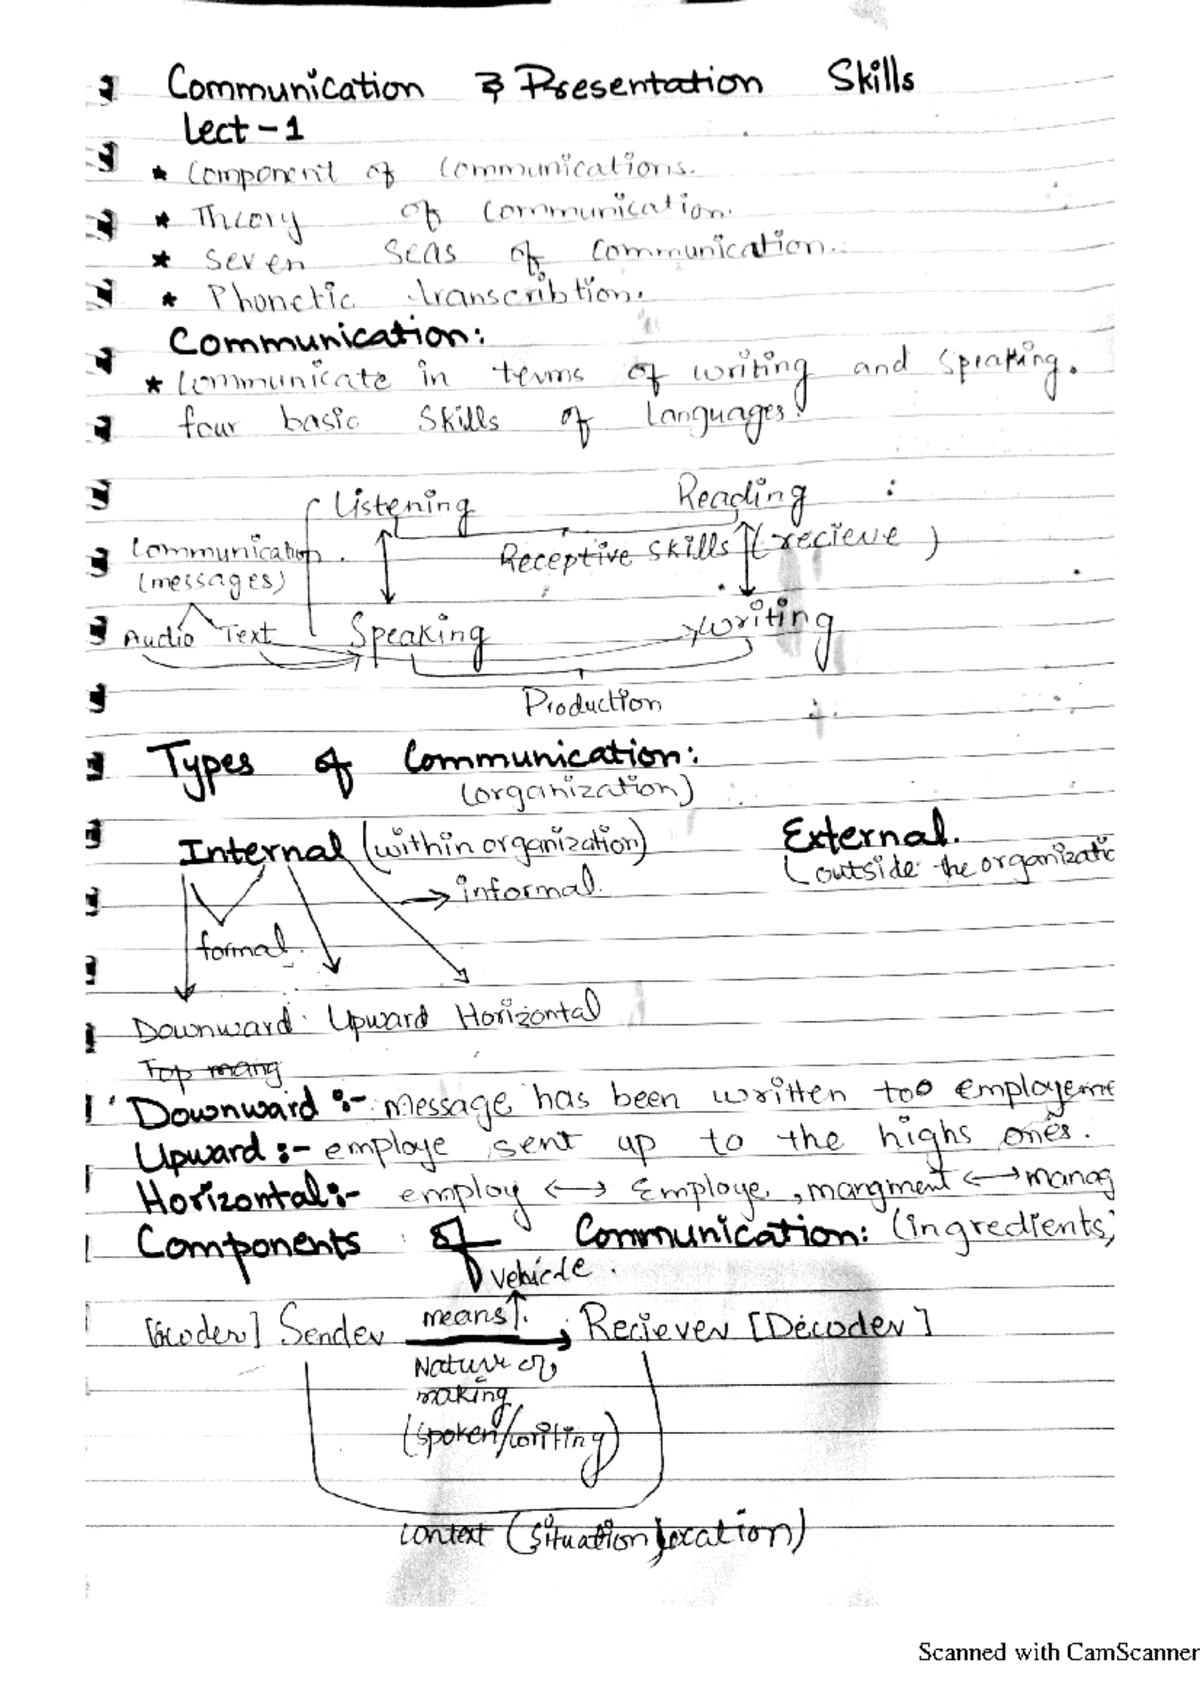 Communication & Presentation Skills
Lect-1
* Component of Communications.
* Theory of communication.
* Seven Seas of communication.
* Phonetic transcribtion.
Communication:
* Communicate in terms of writing and speaking.
four basic skills of languages:
Listening Reading :
Communication. Receptive skills (recieve)
(messages)
Audio Text Speaking Writing
Production
Types of Communication:
(organization)
Internal (within organization) External.
(outside the organizatio
→ informal.
formal.
Downward Upward Horizontal
Top mang
Downward :- Message has been written too employeme
Upward :- employe sent up to the highs ones.
Horizontal:- employ ↔ Employe, mangment ↔ manag
Components of Communication: (ingredients)
Vehicle.
means
[Ecoder] Sender Reciever [Decoder]
Nature of
making
(spoken/writing)
Context (situation, location)
Scanned with CamScanner